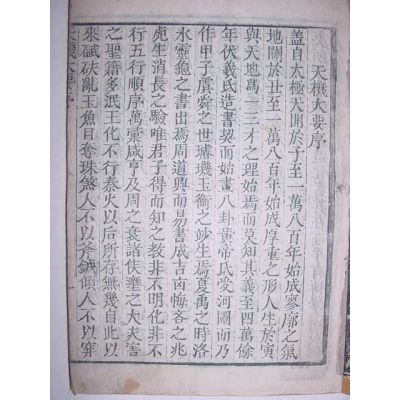 天機大要序
盖自太極天開於子至一萬八百年始成寥廓之氣
地闢於丑至一萬八百年始成厚重之形人生於寅
與天地爲一三才之理始焉而莫知其義至四萬餘
年伏羲氏造書契而始畫八卦黃帝氏受河圖而乃
作甲子虞舜之世璿璣玉衡之妙生焉夏禹之時洛
水靈龜之書出焉周道興而易書成吉凶悔吝之兆
宛生消長之驗唯君子得而知之教非不明化非不
行五行順序萬彙咸亨及周之衰諸侯壅之大夫害
之聖籍多泯王化不行秦火以后所存無幾自此以
來碔砆亂玉魚目奪珠煞人不以斧鉞傾人不以穽